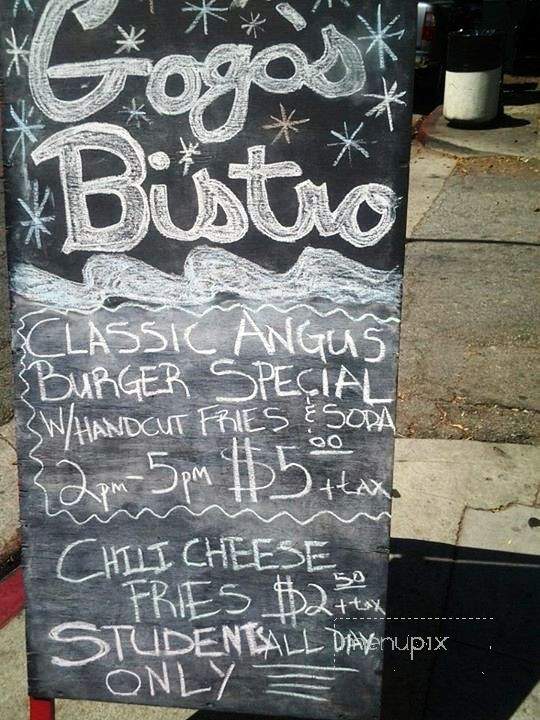 Gogo's
Bistro
CLASSIC ANGUS
BURGER SPECIAL
W/HANDCUT FRIES & SODA
2pm-5pm $5.00 +tax
CHILI CHEESE
FRIES $2.50 +tax
STUDENTS ALL DAY
ONLY
menupix